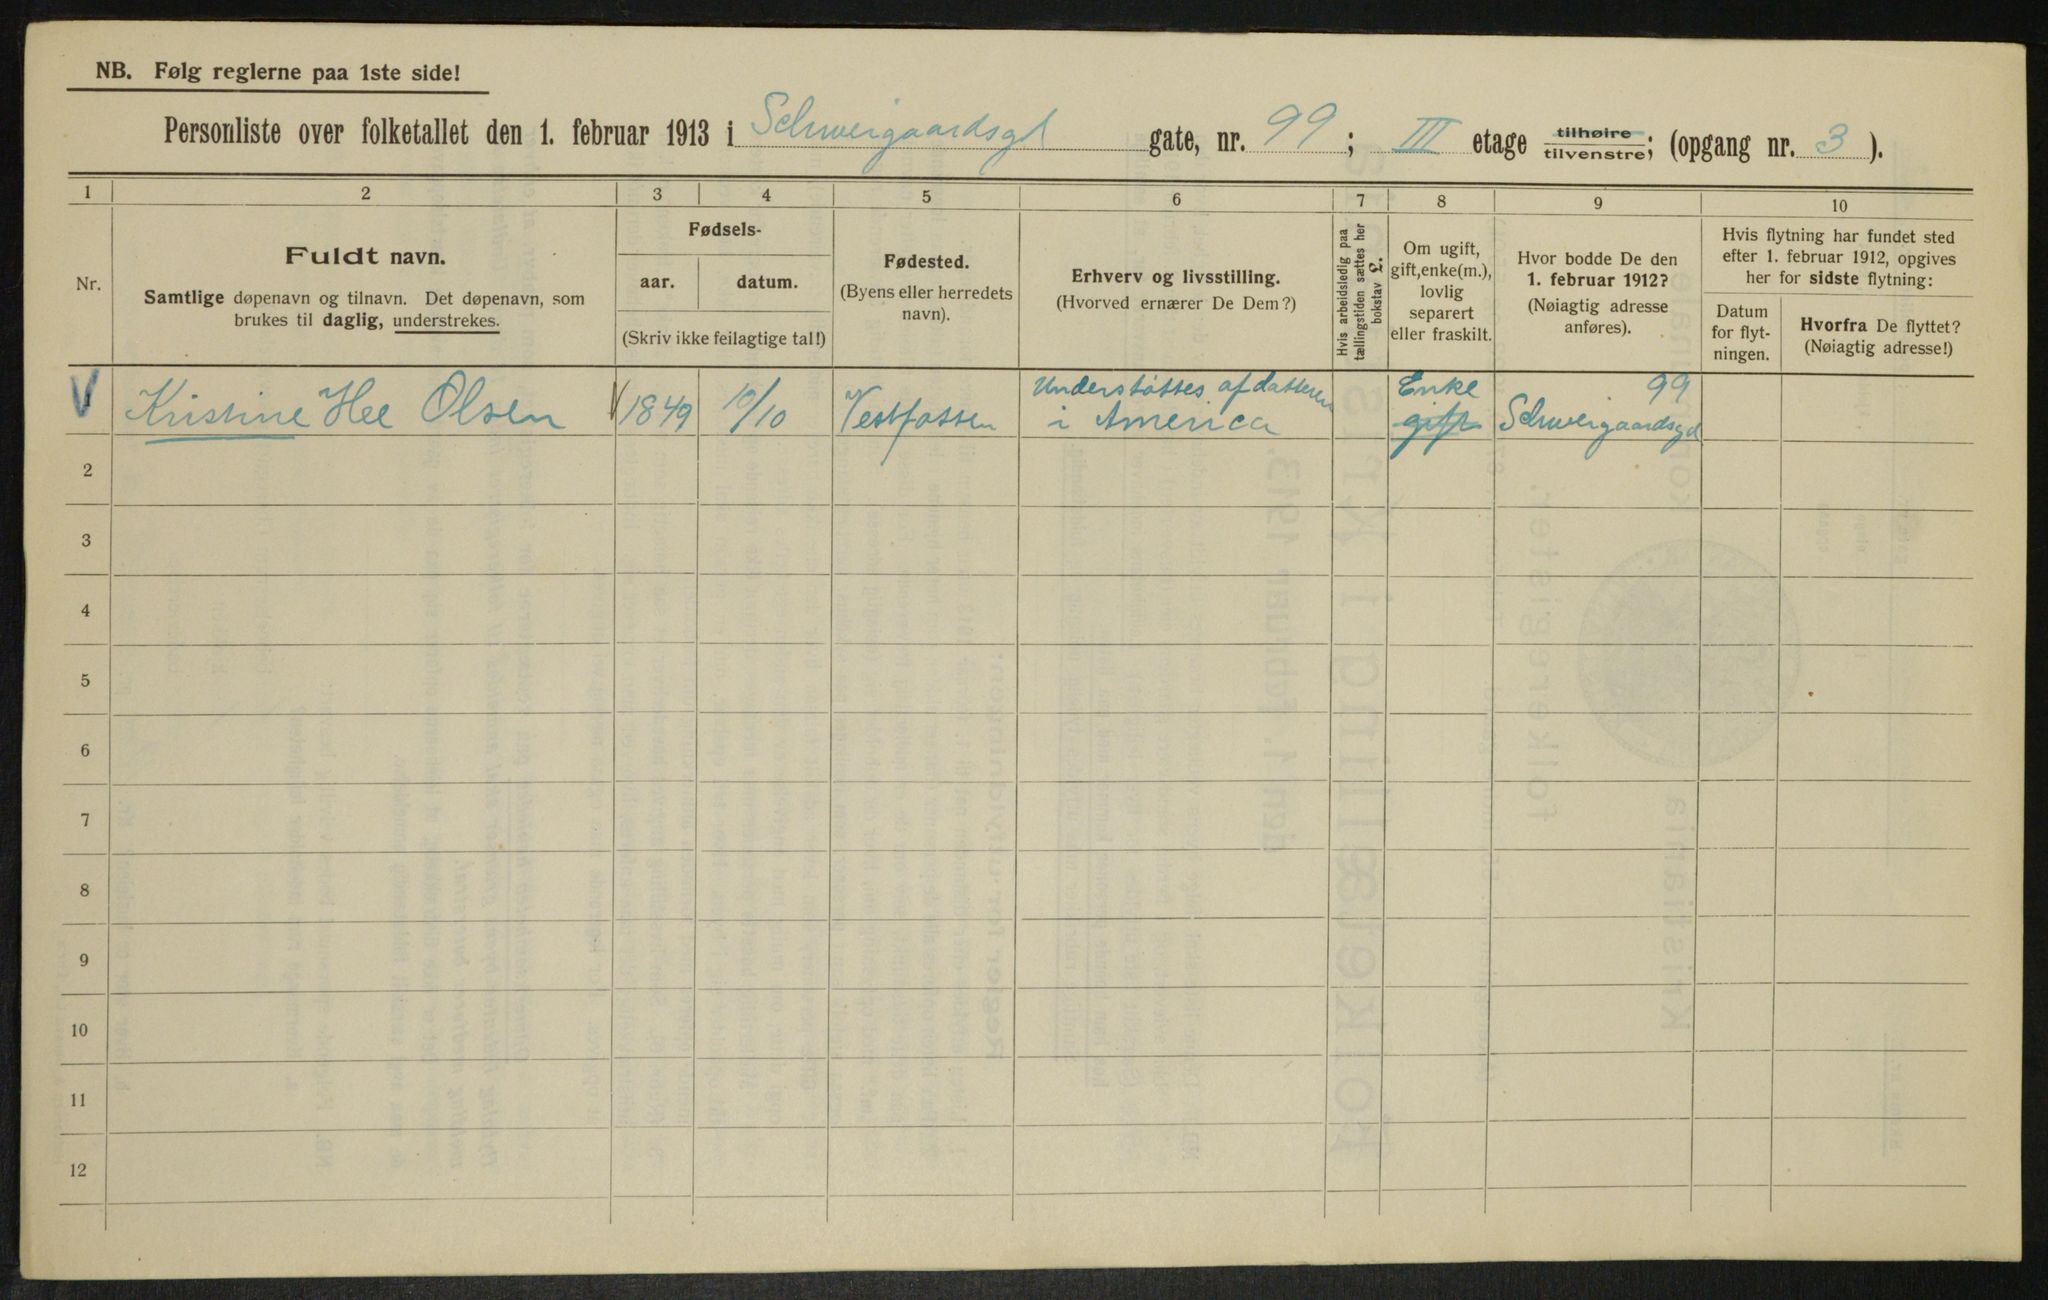 NB. Følg reglerne paa 1ste side!
Personliste over folketallet den 1. februar 1913 i Schweigaardsgd gate, nr. 99; III etage tilhøire/tilvenstre; (opgang nr. 3).
1 2 3 4 5 6 7 8 9 10
Nr.
Fuldt navn.
Samtlige døpenavn og tilnavn. Det døpenavn, som
brukes til daglig, understrekes.
Fødsels-
aar. datum.
(Skriv ikke feilagtige tal!)
Fødested.
(Byens eller herredets
navn).
Erhverv og livsstilling.
(Hvorved ernærer De Dem?)
Hvis arbeidsledig paa
tællingstiden sættes her
bokstav L.
Om ugift,
gift, enke(m.),
lovlig
separert
eller fraskilt.
Hvor bodde De den
1. februar 1912?
(Nøiagtig adresse
anføres).
Hvis flytning har fundet sted
efter 1. februar 1912, opgives
her for sidste flytning:
Datum
for flyt-
ningen.
Hvorfra De flyttet?
(Nøiagtig adresse!)
Understøttes af datteren Enke 99
V Kristine Hee Olsen V 1849 10/10 Vestfossen i America gift Schweigaardsgd
2
3
4
5
6
7
8
9
10
11
12